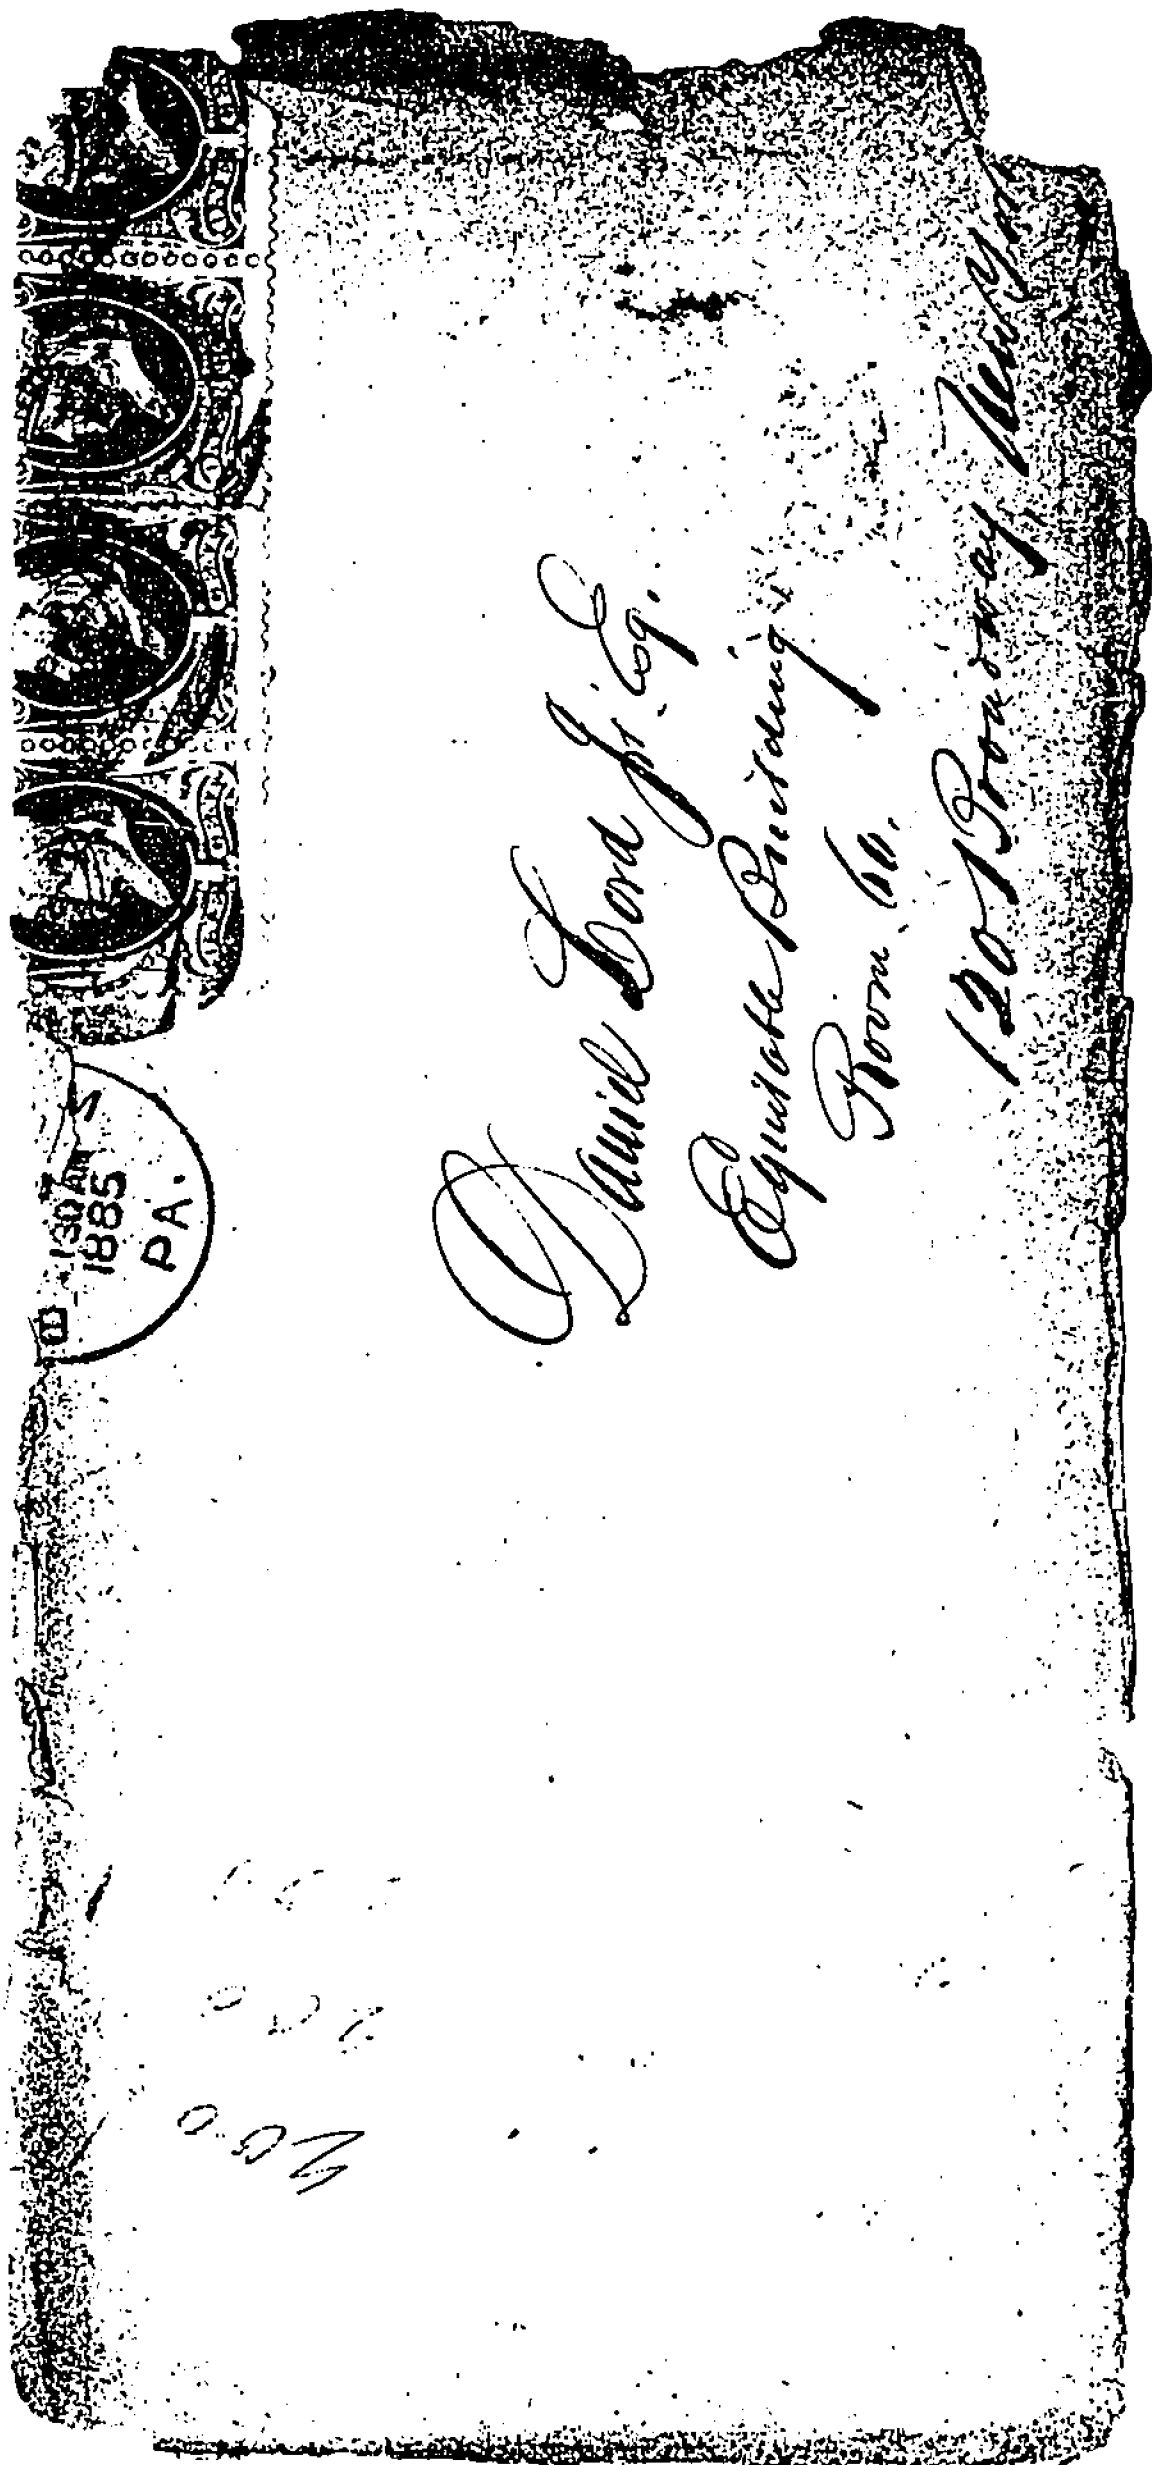 130 AM
1885
PA.
Daniel Lord Jr. Esq.
Equitable Building
Room 60.
120 Broadway, New York
200